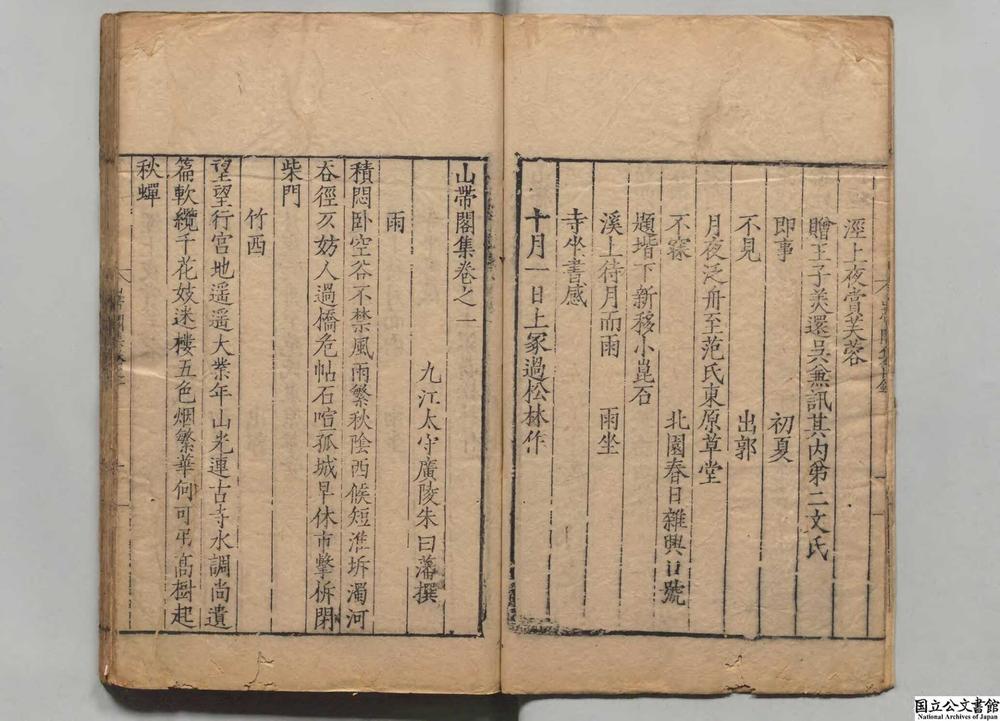 溪上夜賞芙蓉
贈王子羙還吳兼訊其内弟二文氏
即事　初夏
不見　出郭
月夜泛舟至范氏東原草堂
不寐　北園春日雜興口號
題堦下新移小崑石
溪上待月而雨　雨坐
寺坐書感
十月一日上冢過松林作
山帶閣集卷之一
九江太守廣陵朱曰藩撰
雨
積悶卧空谷不禁風雨繁秋陰西候短淮坼濁河
吞徑仄妨人過橋危帖石喧孤城早休市擊柝閉
柴門
竹西
望望行宫地遥遥大業年山光連古寺水調尚遺
篇軟纜千花妓迷樓五色烟繁華何可弔髙樹起
秋蟬
国立公文書館
National Archives of Japan